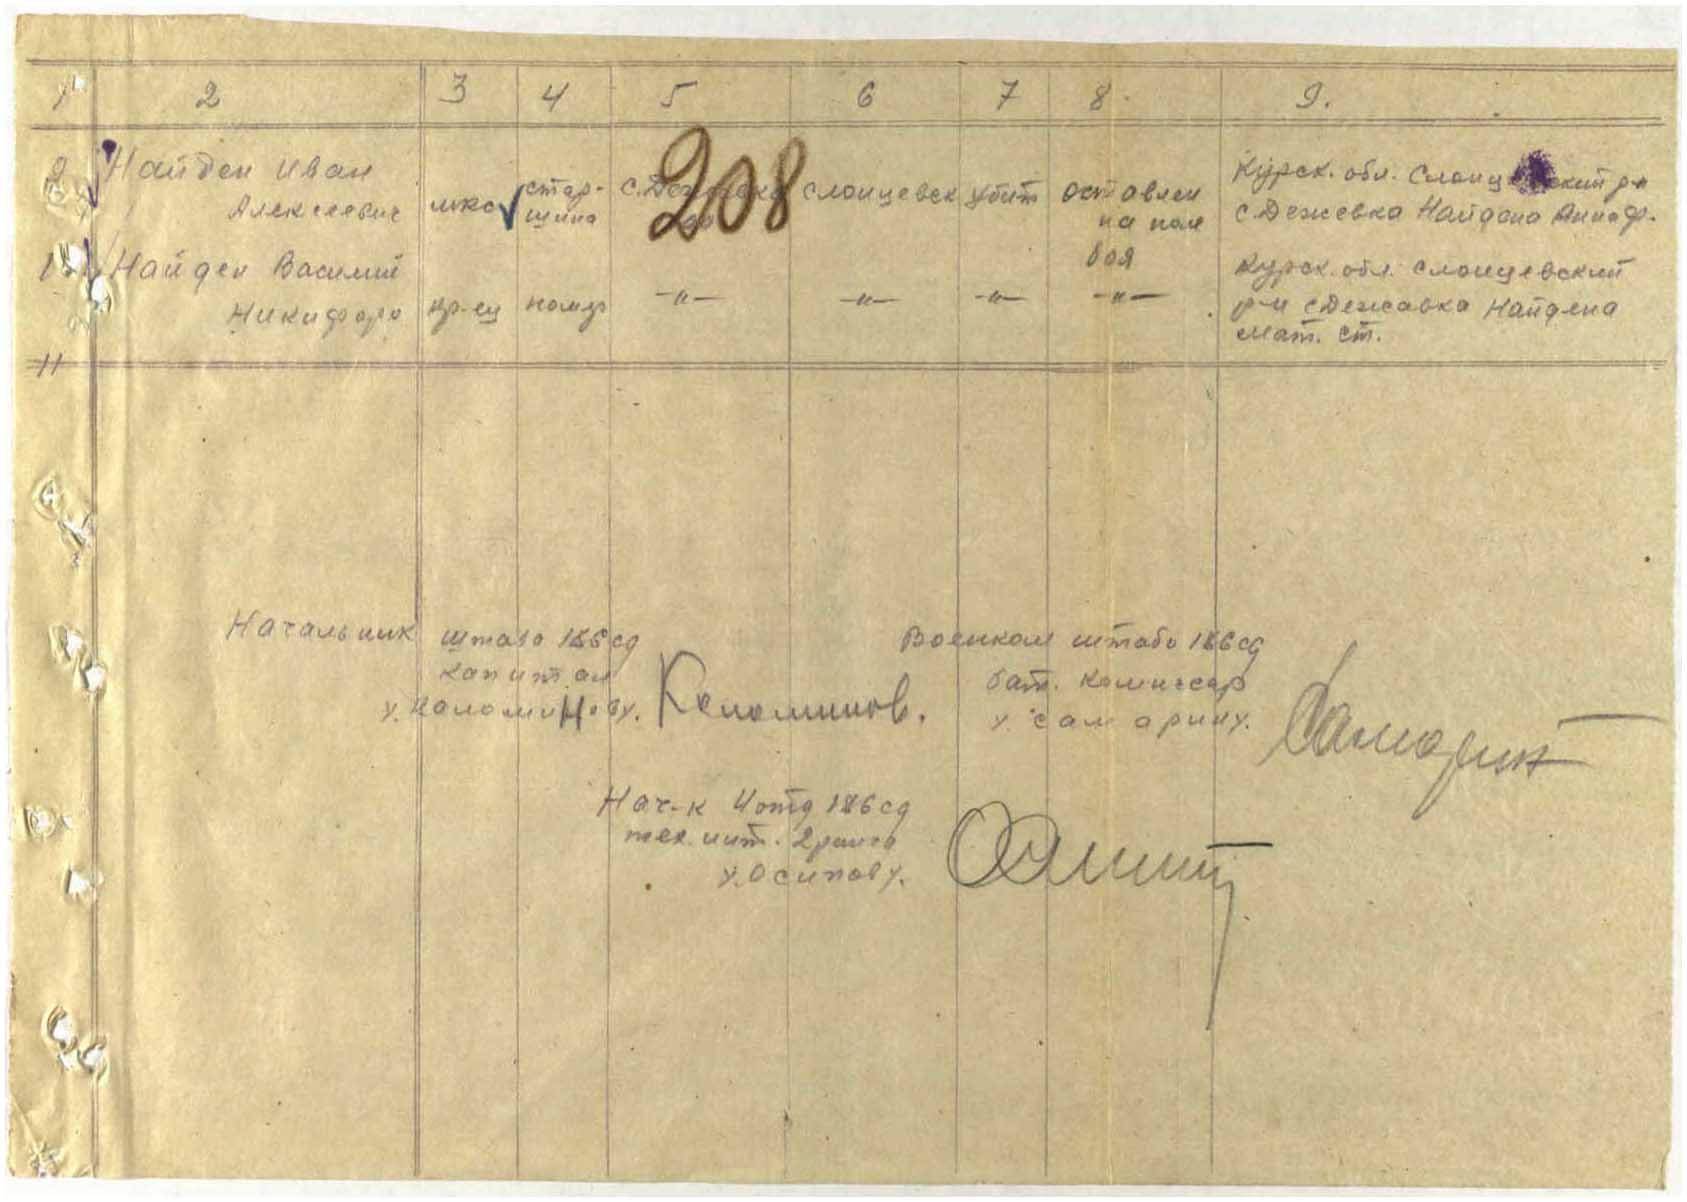 1 2 3 4 5 6 7 8 9.
208
9 Найден Иван
Алексеевич
мкс
стар-
шина
с. Дежевка
Слонцевск
убит
оставлен
на поле
боя
Курск. обл. Слонц ский р-н
с. Дежевка Найдена Анна Ф.
Найден Василий
Никифоро
кр-ец номер -"- -"- -"- -"-
Курск. обл. Слонцевский
р-н с Дежавка Найдена
Мат. Ст.
11
Начальник штаба 186 сд
капитан
у. Коломинову. Коломинов.
Военком штаба 186 сд
бат. комиссар
у. Самарину. Самарин
Нач-к 4 отд 186 сд
тех. инт. 2 ранга
у. Осипову.